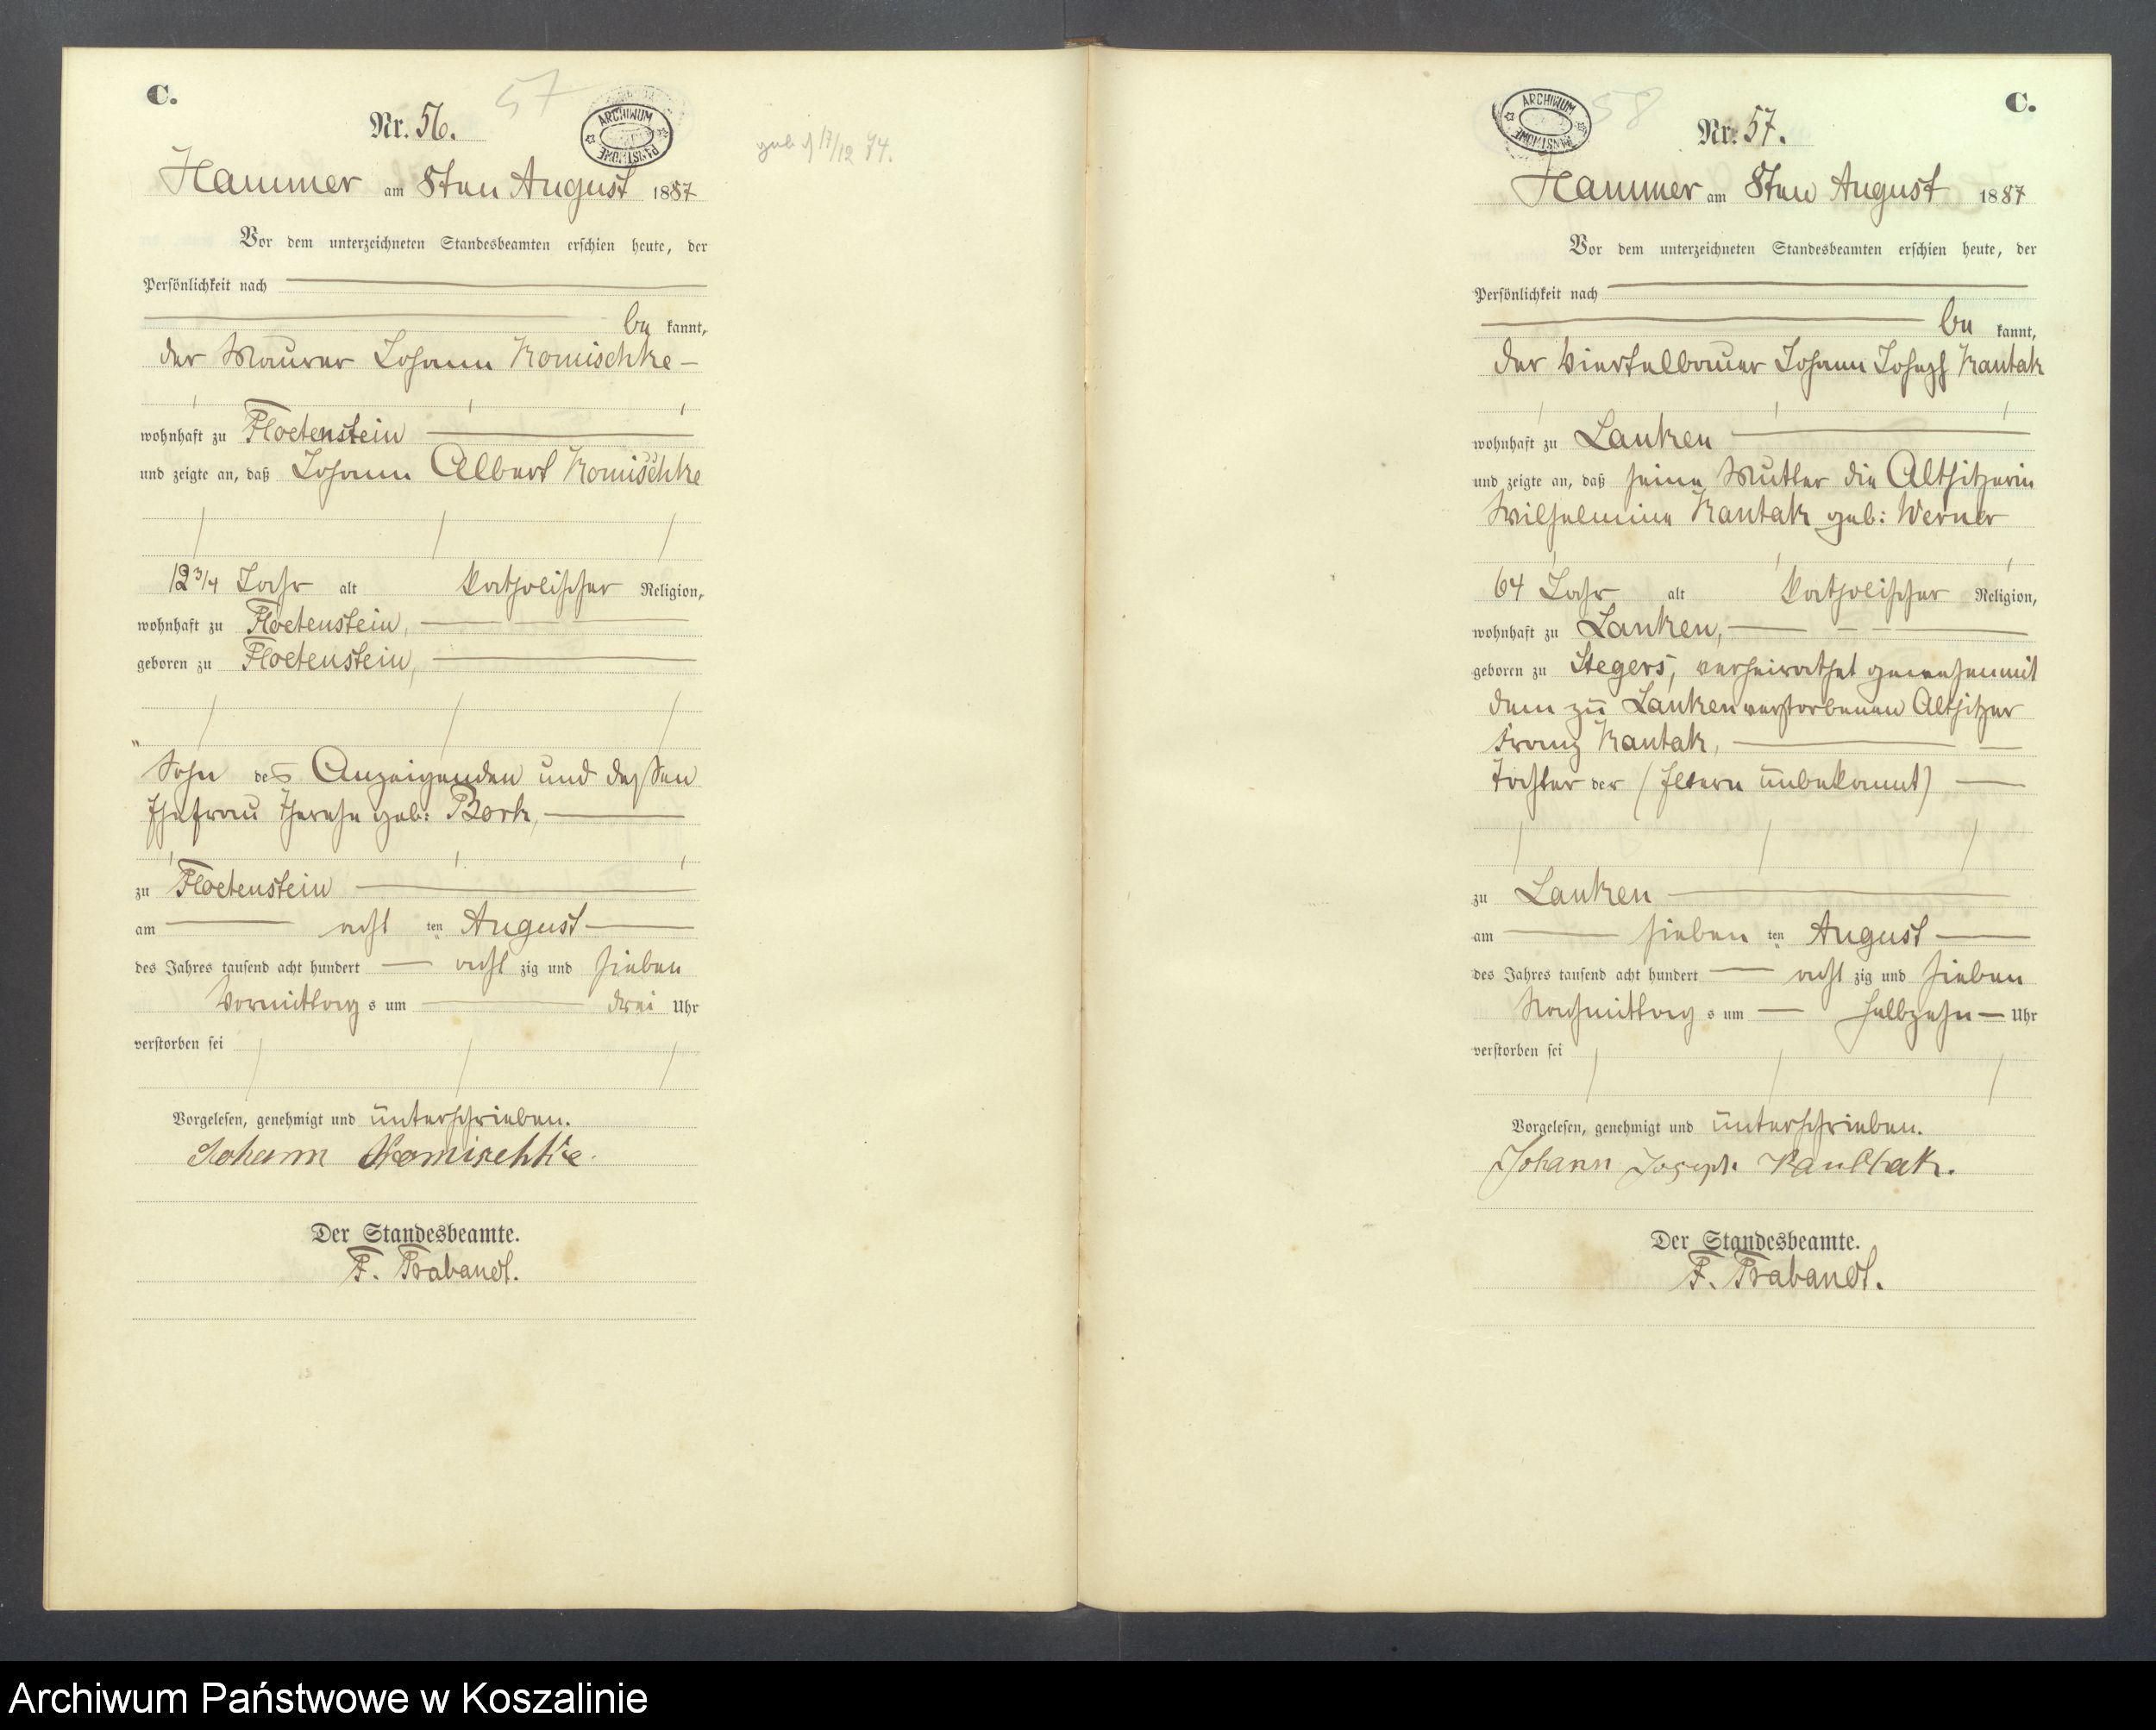 C.
57
Nr. 56.
ARCHIWUM PAŃSTWOWE
geb. 17/12 74.
Hammer am 8ten August 1887
Vor dem unterzeichneten Standesbeamten erschien heute, der
Persönlichkeit nach
be kannt,
der Maurer Johann Komischke
wohnhaft zu Floetenstein
und zeigte an, daß Johann Albert Komischke
12 3/4 Jahr alt katholischer Religion,
wohnhaft zu Floetenstein,
geboren zu Floetenstein,
Sohn des Anzeigenden und dessen
Ehefrau Therese geb: Bork,
zu Floetenstein
am acht ten August
des Jahres tausend acht hundert acht zig und sieben
Vormittag s um drei Uhr
verstorben sei
Vorgelesen, genehmigt und unterschrieben.
Johann Komischke.
Der Standesbeamte.
F. Brabandt.
C.
58
Nr. 57.
ARCHIWUM PAŃSTWOWE
Hammer am 8ten August 1887
Vor dem unterzeichneten Standesbeamten erschien heute, der
Persönlichkeit nach
be kannt,
der Viertelbauer Johann Joseph Kantak
wohnhaft zu Lanken
und zeigte an, daß seine Mutter die Altsitzerin
Wilhelmine Kantak geb: Werner
64 Jahr alt katholischer Religion,
wohnhaft zu Lanken,
geboren zu Stegers, verheirathet gewesen mit
dem zu Lanken verstorbenen Altsitzer
Franz Kantak,
Tochter der (Eltern unbekannt)
zu Lanken
am sieben ten August
des Jahres tausend acht hundert acht zig und sieben
Nachmittag s um halbzehn Uhr
verstorben sei
Vorgelesen, genehmigt und unterschrieben.
Johann Joseph Kanttak.
Der Standesbeamte.
F. Brabandt.
Archiwum Państwowe w Koszalinie